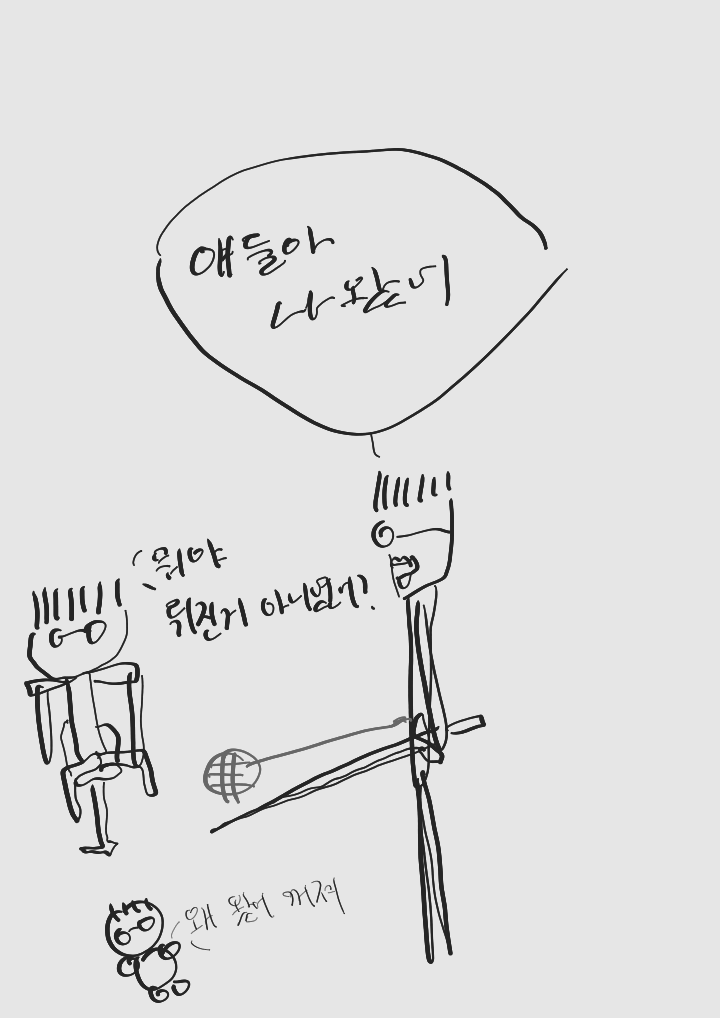 얘들아
나 왔는데
뭐야
뒤진거 아니였어?
왜 왔어 꺼져